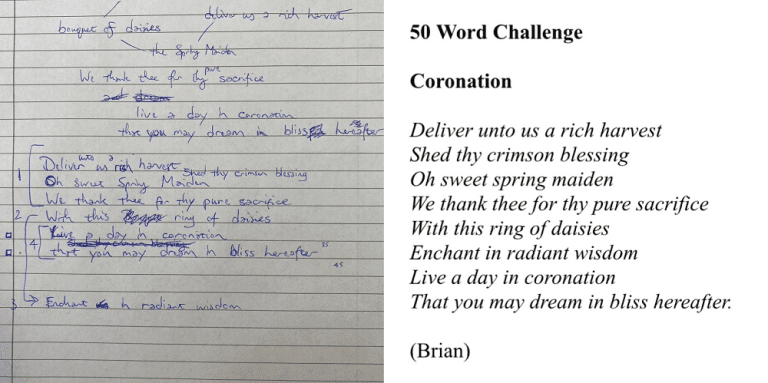 deliver us a rich harvest
bouquet of daisies
the Spring Maiden
We thank thee for thy pure sacrifice
live a day in coronation
that you may dream in bliss hereafter
1
Deliver unto us a rich harvest Shed thy crimson blessing
Oh sweet Spring Maiden
We thank thee for thy pure sacrifice
2 With this ring of daisies
4 Live a day in coronation
that you may dream in bliss hereafter 55
45
3 Enchant in radiant wisdom
50 Word Challenge
Coronation
Deliver unto us a rich harvest
Shed thy crimson blessing
Oh sweet spring maiden
We thank thee for thy pure sacrifice
With this ring of daisies
Enchant in radiant wisdom
Live a day in coronation
That you may dream in bliss hereafter.
(Brian)